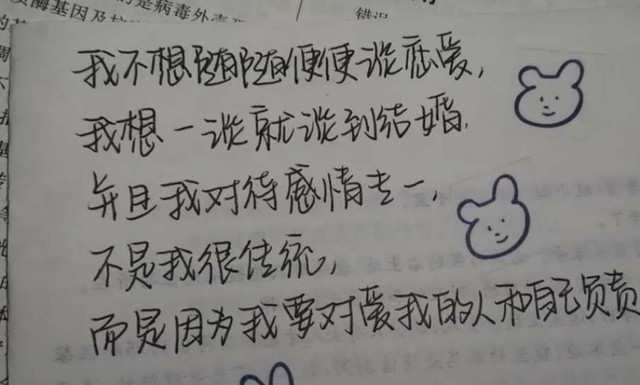 酶基因及
是病毒外
错误
我不想随随便便谈恋爱,
我想一谈就谈到结婚.
并且我对待感情专一
不是我很传统,
而是因为我要对爱我的人和自己负责